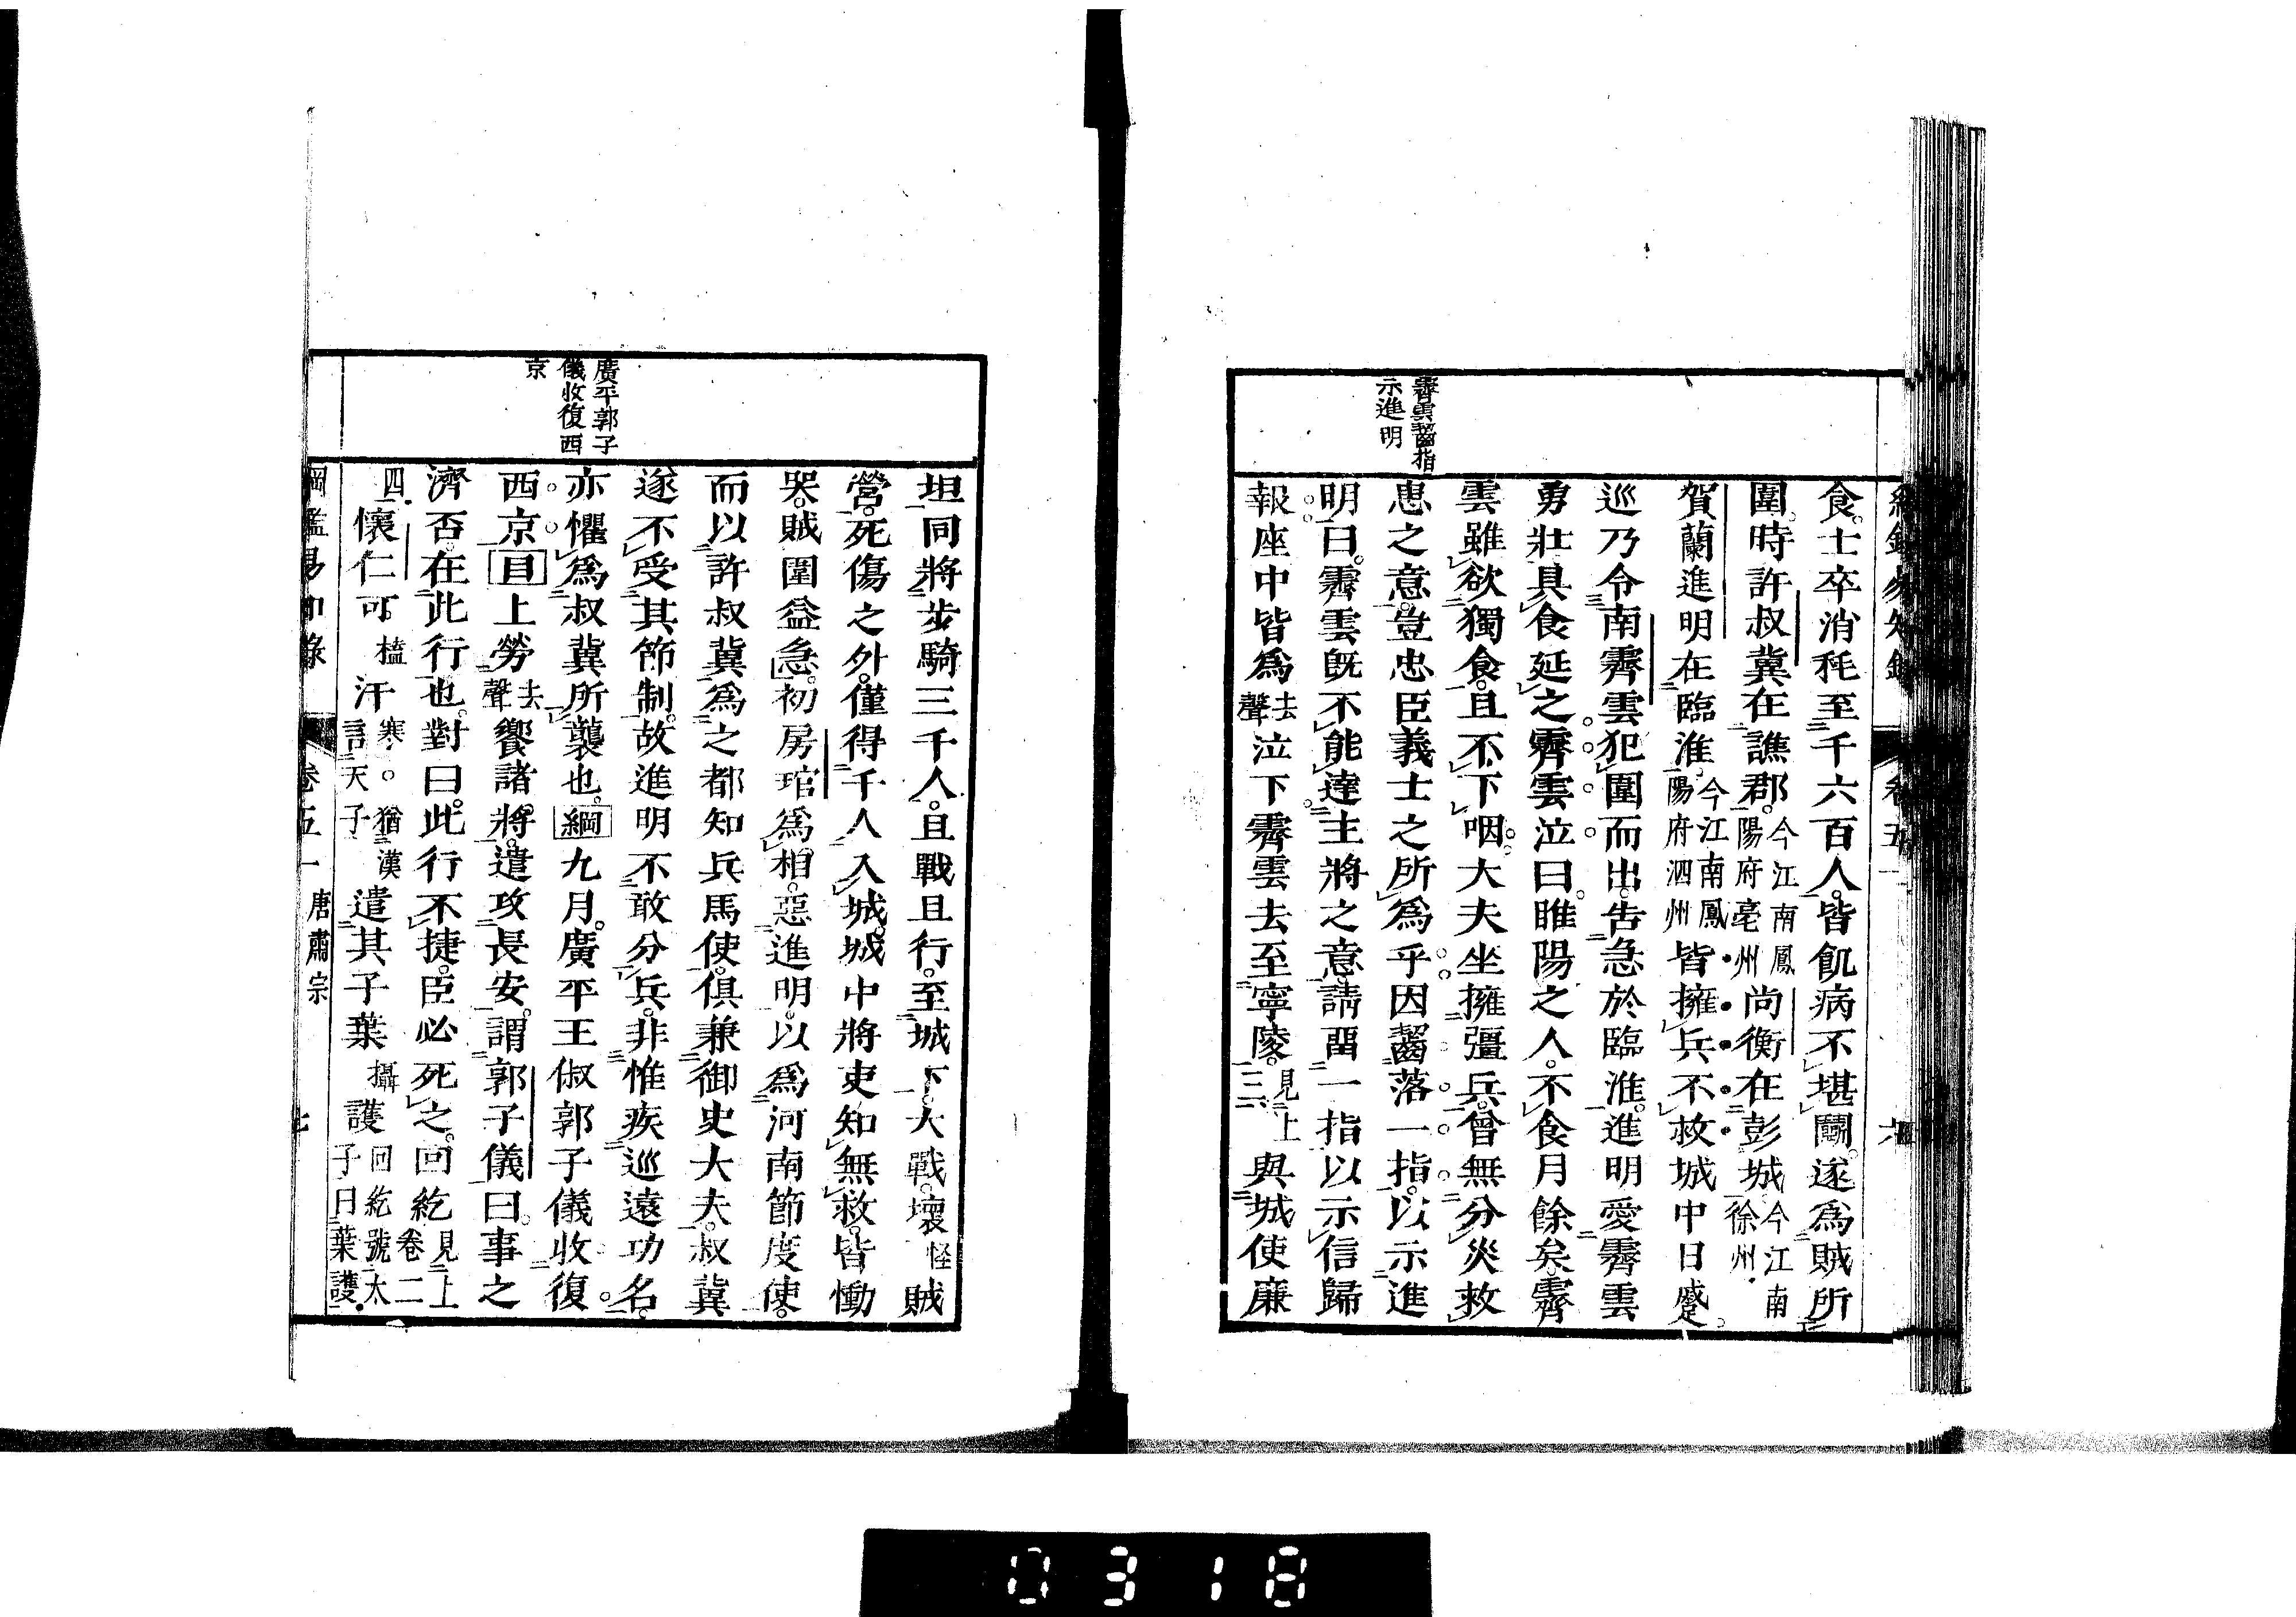 綱鑑易知錄
卷五一
六
霽雲齧指
示進明
食士卒消耗至千六百人皆飢病不堪鬭遂爲賊所
圍時許叔冀在譙郡今江南鳳陽府亳州尚衡在彭城今江南徐州
賀蘭進明在臨淮今江南鳳陽府泗州皆擁兵不救城中日蹙
巡乃令南霽雲犯圍而出告急於臨淮進明愛霽雲
勇壯具食延之霽雲泣曰睢陽之人不食月餘矣霽
雲雖欲獨食且不下咽大夫坐擁彊兵曾無分災救
患之意豈忠臣義士之所爲乎因齧落一指以示進
明曰霽雲既不能達主將之意請留一指以示信歸
報座中皆爲去聲泣下霽雲去至寧陵見上三與城使廉
廣平郭子
儀收復西
京
坦同將步騎三千人且戰且行至城下大戰壞怪賊
營死傷之外僅得千人入城城中將吏知無救皆慟
哭賊圍益急初房琯爲相惡進明以爲河南節度使
而以許叔冀爲之都知兵馬使俱兼御史大夫叔冀
遂不受其節制故進明不敢分兵非惟疾巡遠功名
亦懼爲叔冀所襲也綱九月廣平王俶郭子儀收復
西京目上勞去聲饗諸將遣攻長安謂郭子儀曰事之
濟否在此行也對曰此行不捷臣必死之回紇見上卷二
四懷仁可榼汗寒猶漢言天子遣其子葉攝護回紇號太子曰葉護
綱鑑易知錄
卷五一
唐肅宗
七
0318